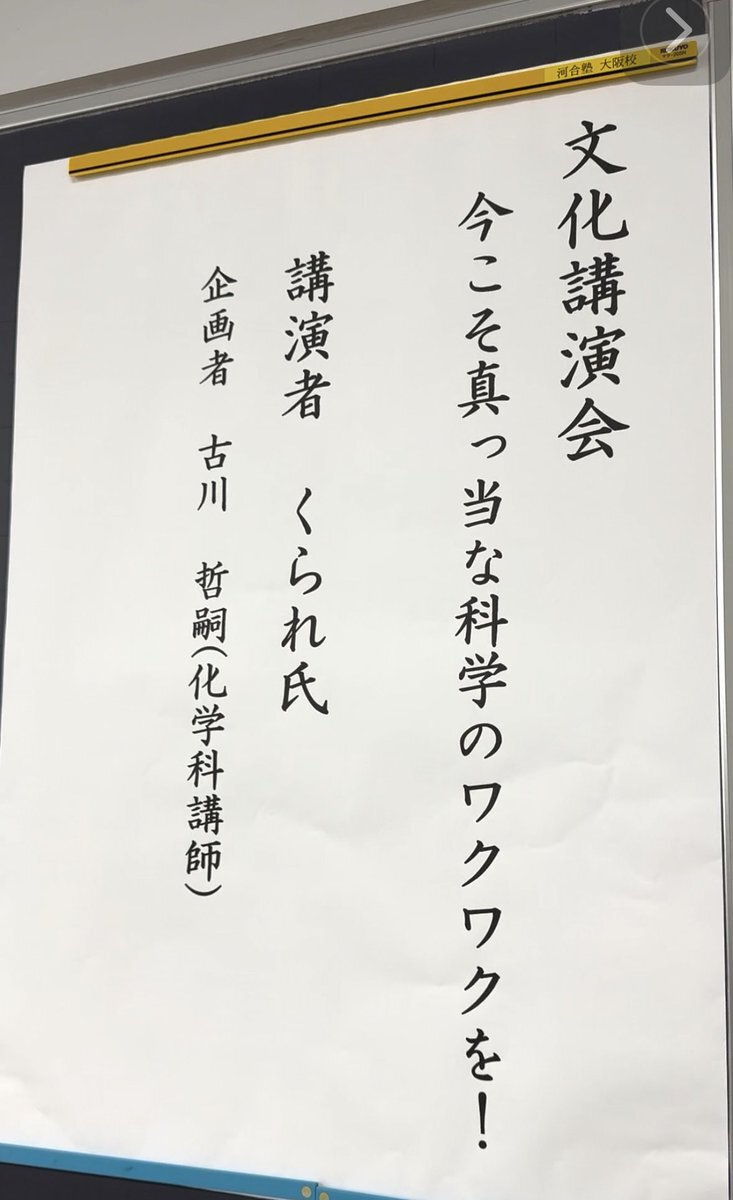 文化講演会
今こそ真っ当な科学のワクワクを！
講演者　くられ氏
企画者　古川　哲嗣（化学科講師）
河合塾 大阪校